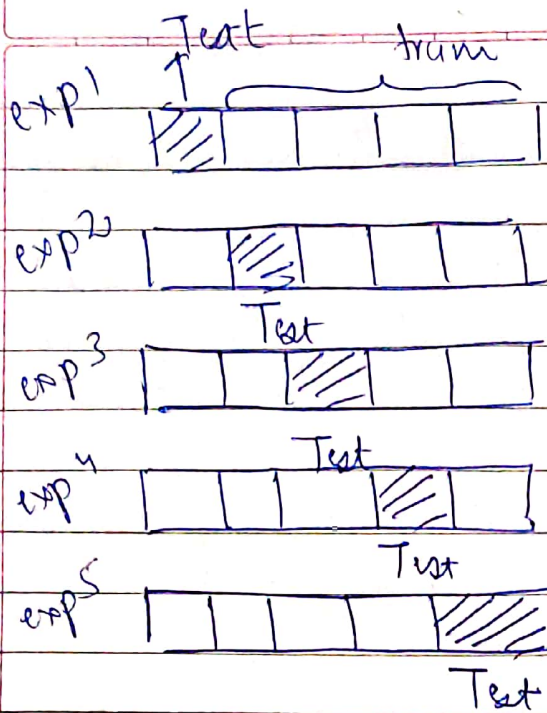 Test
train
exp1
exp2
Test
exp3
Test
exp4
Test
exp5
Test